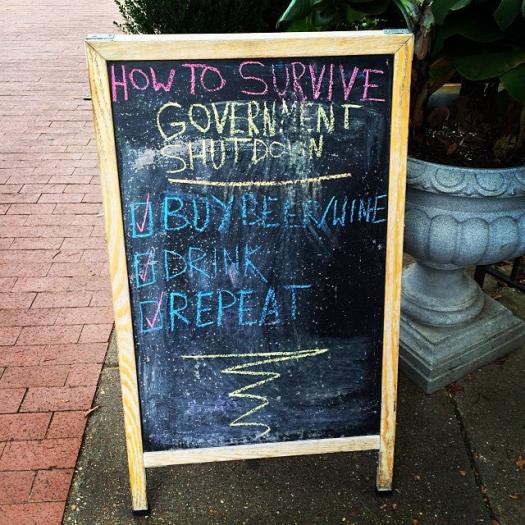 HOW TO SURVIVE
GOVERNMENT
SHUTDOWN
BUY BEER/WINE
DRINK
REPEAT